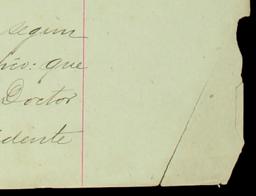 segun
que
Doctor
idente